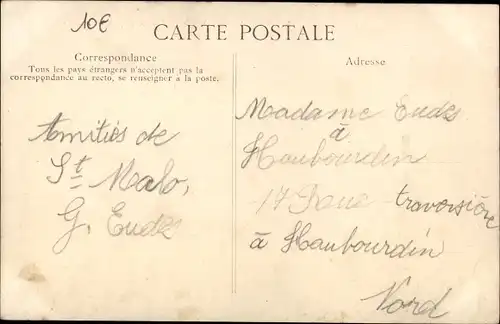 10€
CARTE POSTALE
Correspondance
Tous les pays étrangers n'acceptent pas la
correspondance au recto, se renseigner a la poste.
Amitiés de
St Malo,
G. Eudes
Adresse
Madame Eudes
à
Haubourdin
17 Rue traversière
à Haubourdin
Nord